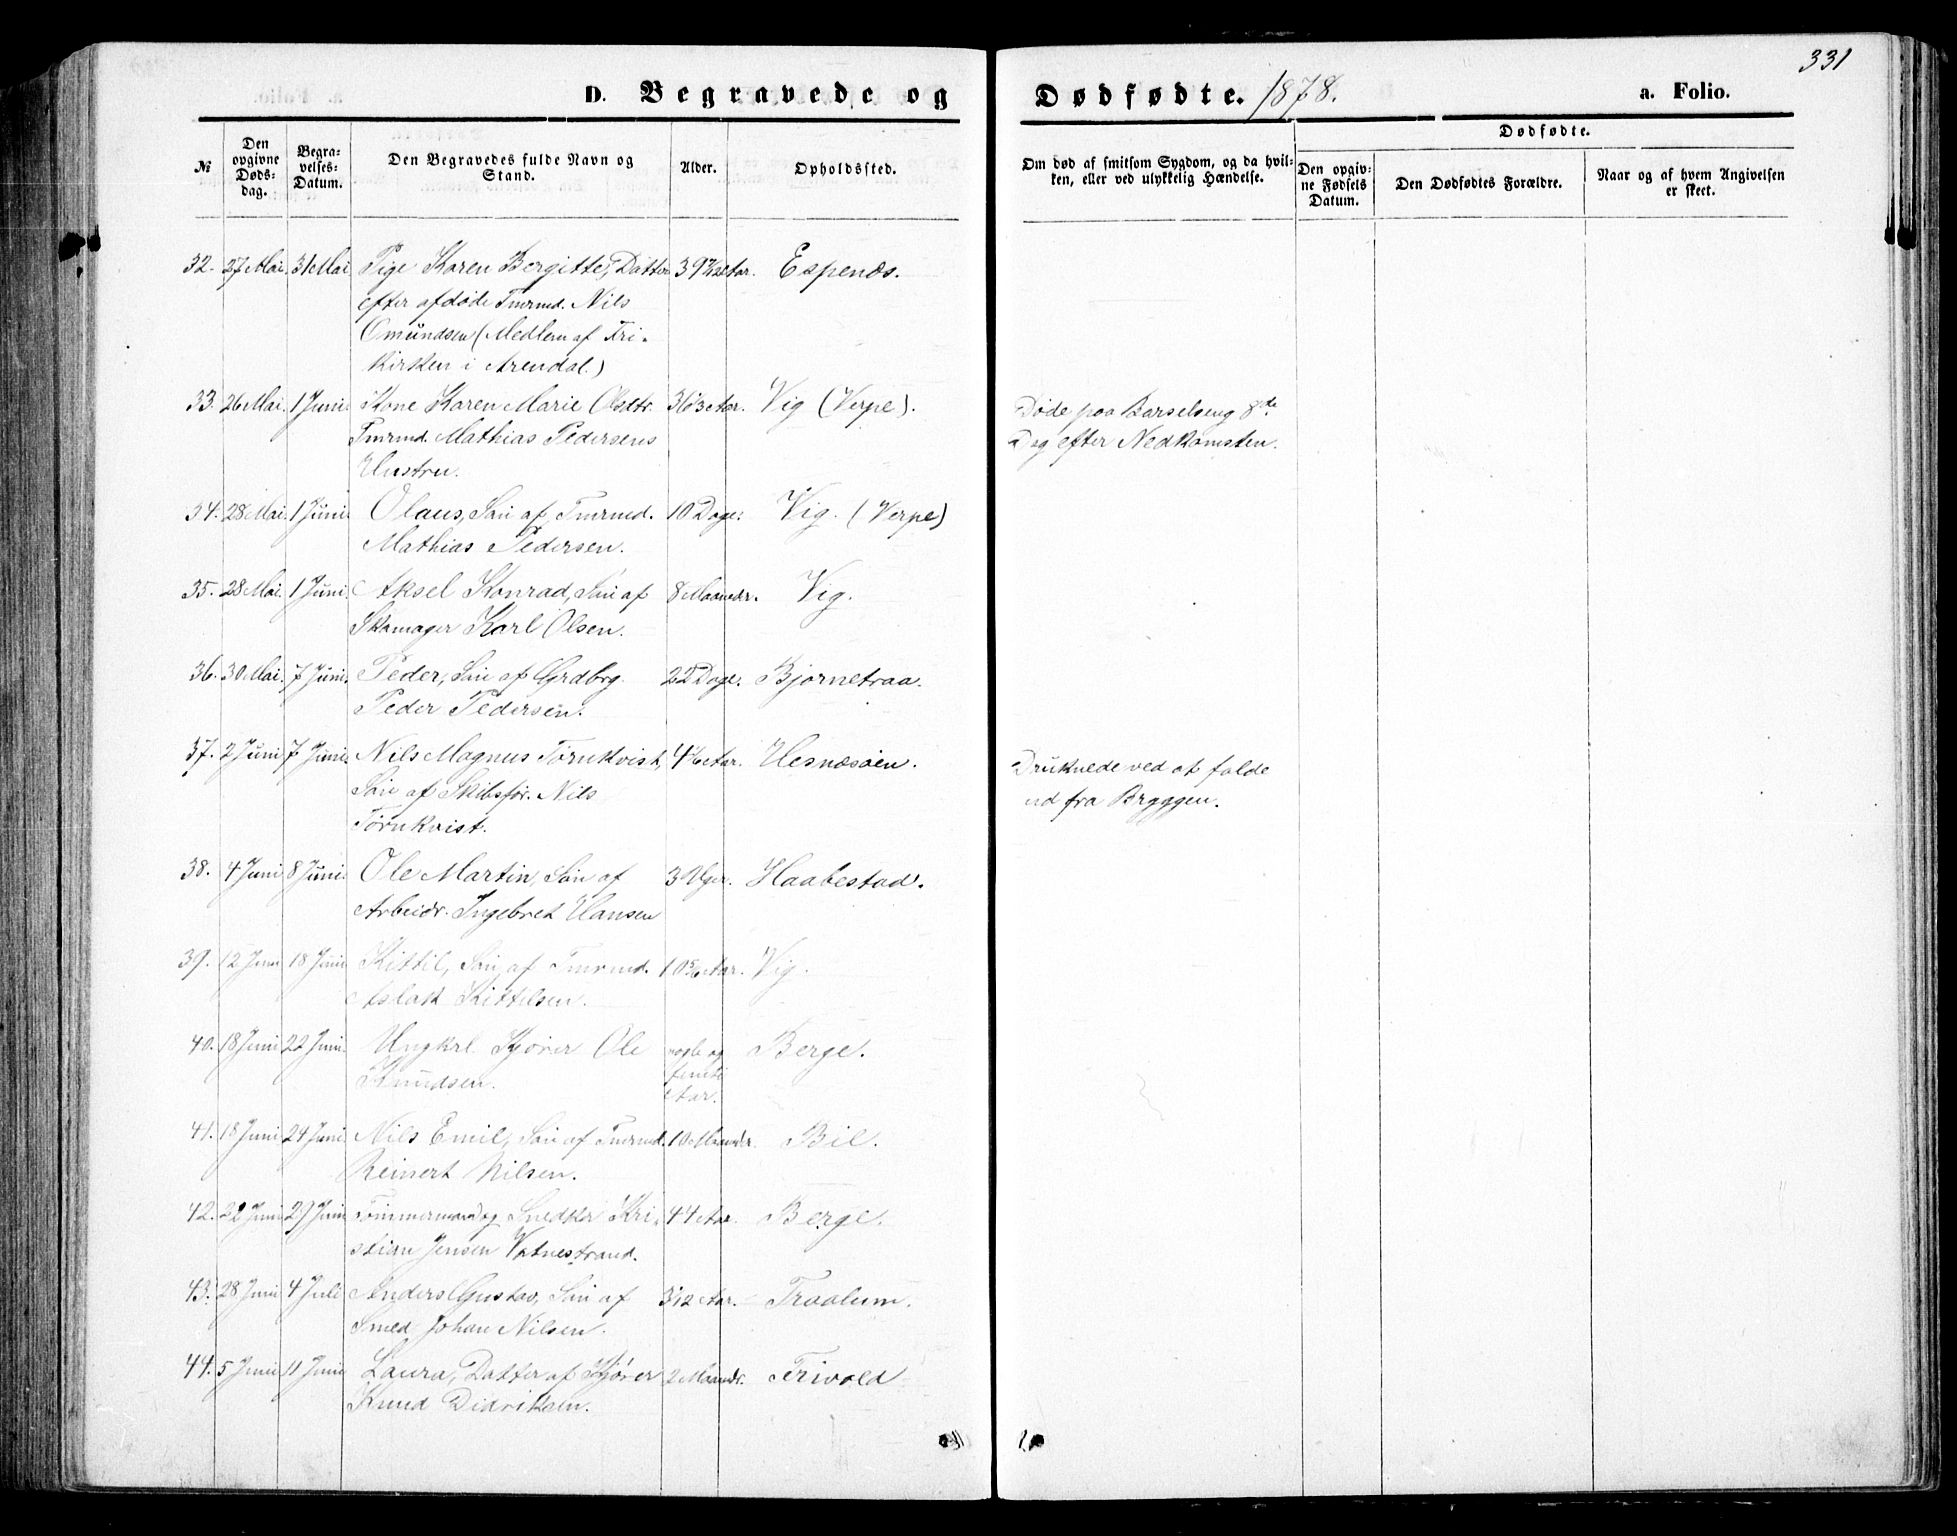 331
D. Begravede og Dødfødte. 1878. a. Folio.
№
Den opgivne Døds-dag.
Begra-velses-Datum.
Den Begravedes fulde Navn og Stand.
Alder.
Opholdssted.
Om død af smitsom Sygdom, og da hvil-ken, eller ved ulykkelig Hændelse.
Dødfødte.
Den opgiv-ne Fødsels Datum.
Den Dødfødtes Forældre.
Naar og af hvem Angivelsen er skeet.
32. 27 Mai. 31 Mai Pige Karen Bergitte, Datter 39 Aar. Espenæs.
efter afdøde Tmrmd. Nils
Omundsen (Medlem af Fri-
kirken i Arendal.)
33. 26 Mai. 1 Juni. Kone Karen Marie Olsdtr. 36 Aar. Vig (Verpe). Døde paa Barselseng 8de
Tmrmd. Mathias Pedersens Dag efter Nedkomsten.
Hustru.
34. 28 Mai. 1 Juni. Olaus, Søn af Tmrmd. 10 Dage. Vig. (Verpe)
Mathias Pedersen.
35. 28 Mai. 1 Juni. Aksel Konrad, Søn af 8 Maanedr. Vig.
Skomager Karl Olsen.
36. 30 Mai. 7 Juni. Peder, Søn af Grdbrg. 22 Dage. Bjørnetraa.
Peder Pedersen.
37. 2 Juni 7 Juni. Nils Magnus Tørnkvist, 4 Aar. Hesnæsøen. Druknede ved at falde
Søn af Skibsfør. Nils ud fra Bryggen.
Tørnkvist.
38. 4 Juni 8 Juni. Ole Martin, Søn af 3 Uger. Haabestad.
Arbeidr. Ingebret Hansen
39. 12 Juni 18 Juni Kittil, Søn af Tmrmd. 10 5/6 Aar. Vig.
Aslak Kittelsen.
40. 18 Juni 22 Juni. Ungkrl. Kjører Ole nogle og Berge.
Knudsen. femti
Aar.
41. 18 Juni 24 Juni. Nils Emil, Søn af Tmrmd. 10 Maanedr. Bie.
Reinert Nilsen.
42. 22 Juni 29 Juni Tømmermand og Snedkr Kri- 44 Aar. Berge.
stian Jensen Vatnestrand.
43. 28 Juni 4 Juli Anders Gustav, Søn af Aar. Traalum.
Smed Johan Nilsen.
44. 5 Juni 11 Juni Laura, Datter af Kjører 2 Maanedr. Trivold
Knud Didriksen.